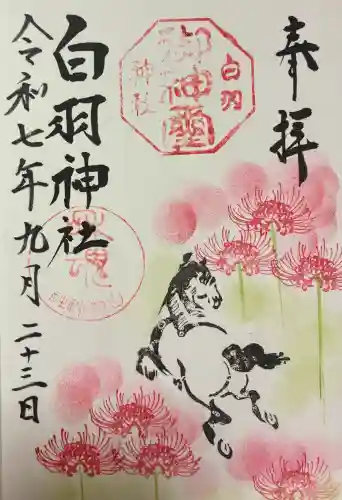 奉拝
白羽
神社
白羽神社
令和七年九月二十三日